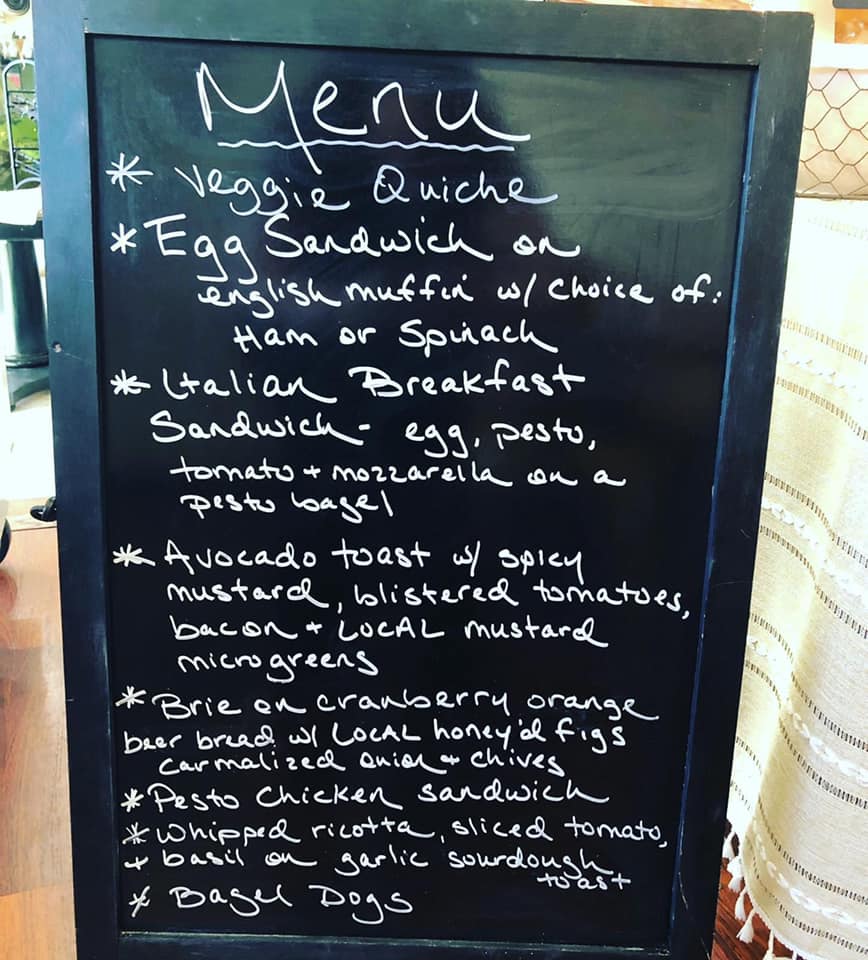 Menu
* Veggie Quiche
* Egg Sandwich on
english muffin w/ choice of:
Ham or Spinach
* Italian Breakfast
Sandwich - egg, pesto,
tomato + mozzarella on a
pesto bagel
* Avocado toast w/ spicy
mustard, blistered tomatoes,
bacon + LOCAL mustard
microgreens
* Brie on cranberry orange
beer bread w/ LOCAL honey'd figs
carmalized onion + chives
* Pesto Chicken sandwich
* Whipped ricotta, sliced tomato,
+ basil on garlic sourdough
toast
* Bagel Dogs